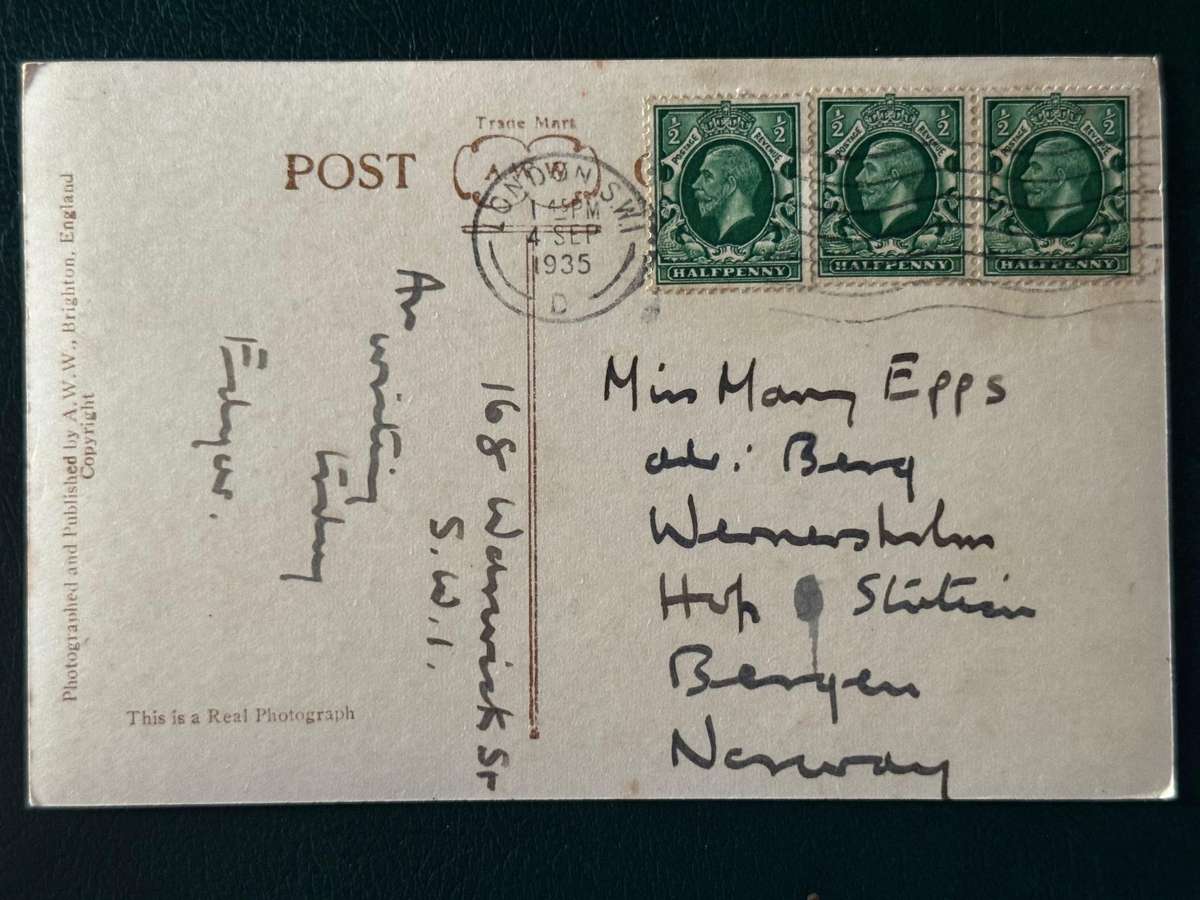 Trade Mark
POST
A W W
LONDON S.W.1
1 45 PM
4 SEP
1935
D
½ ½
POSTAGE REVENUE
HALFPENNY
½ ½
POSTAGE REVENUE
HALFPENNY
½ ½
POSTAGE REVENUE
HALFPENNY
Photographed and Published by A.W.W., Brighton, England
Copyright
168 Warwick St
S.W.1.
writing
This is a Real Photograph
Miss Mary Epps
adr: Berg
Wernersholm
Hop Station
Bergen
Norway